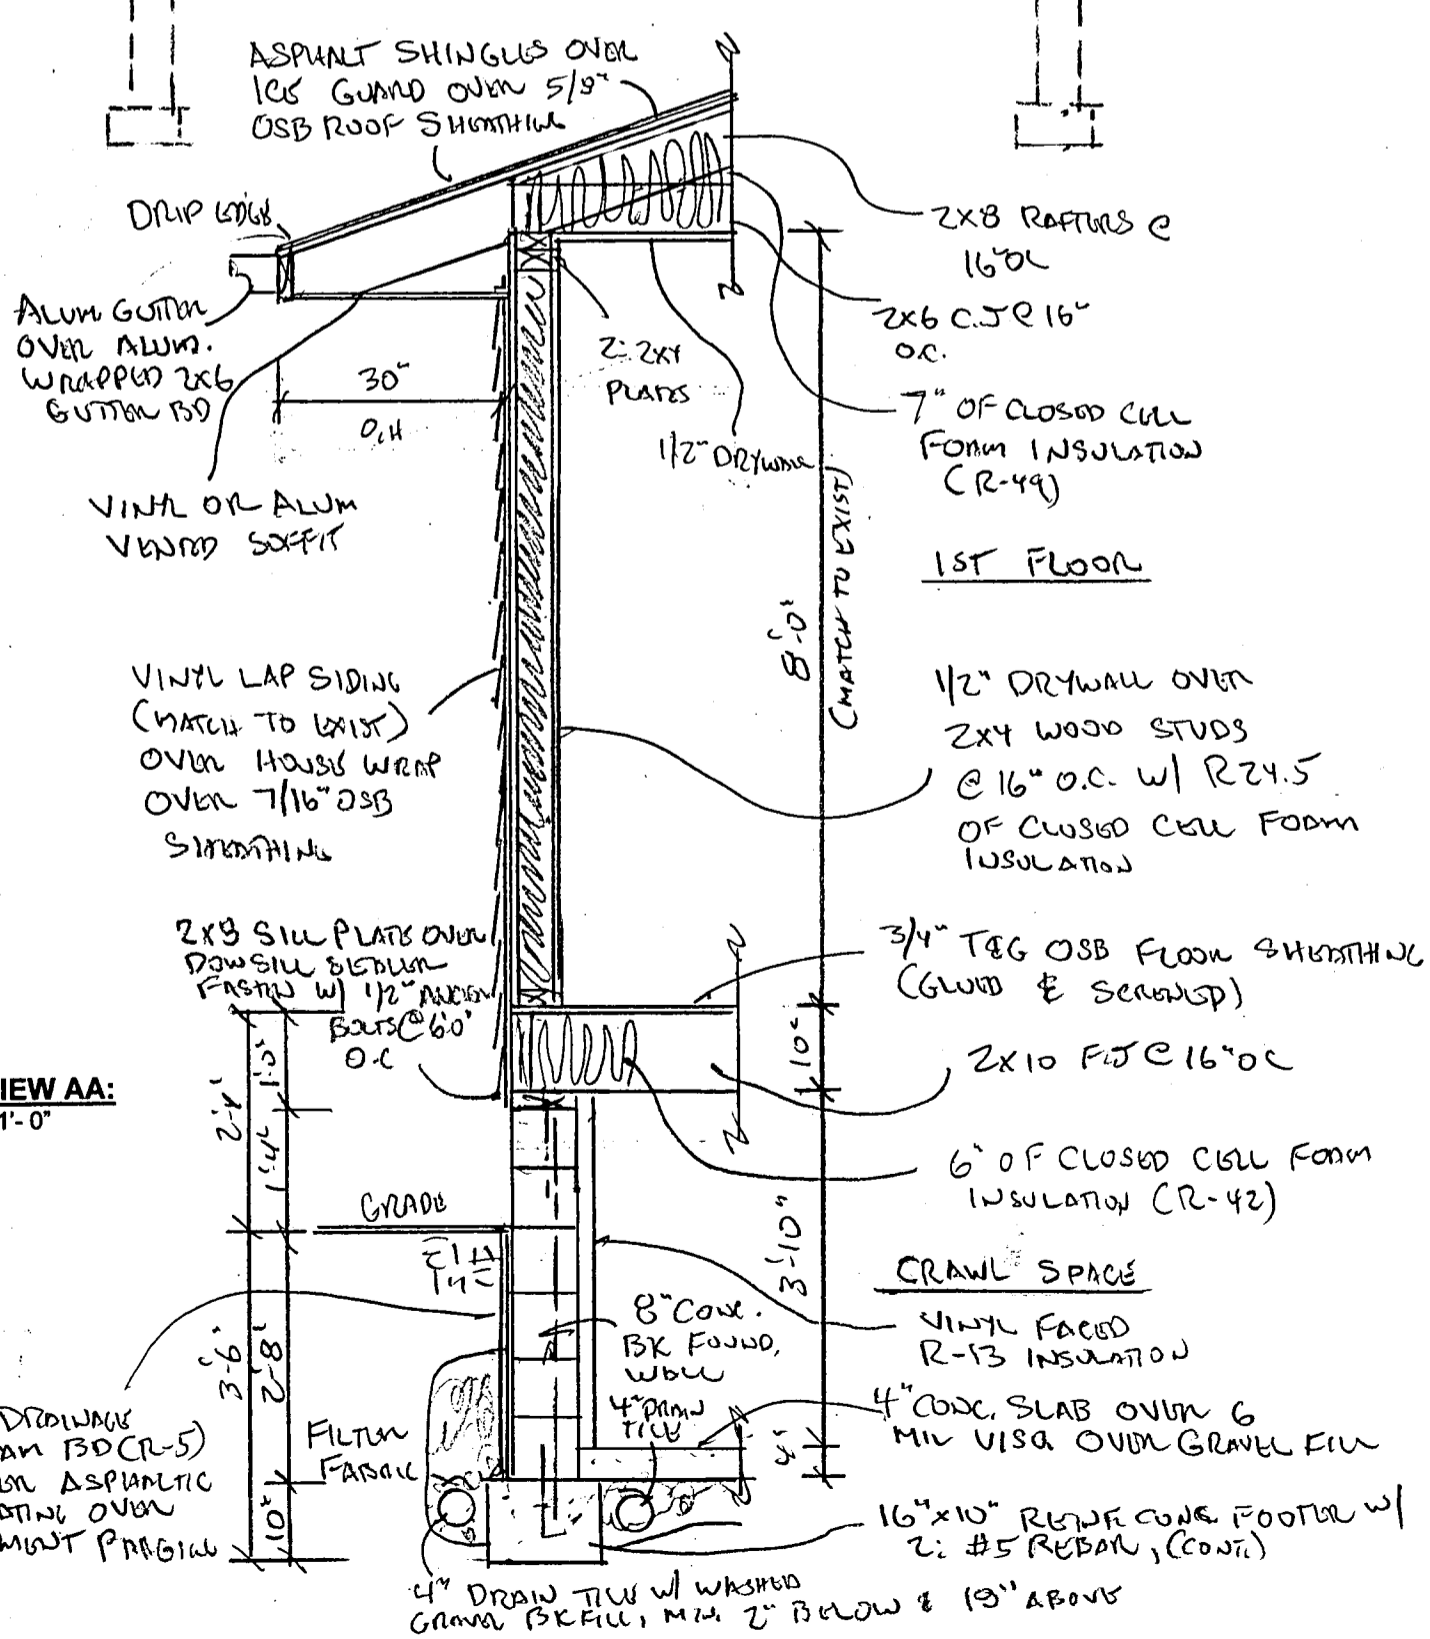 ASPHALT SHINGLES OVER
ICE GUARD OVER 5/8"
OSB ROOF SHEATHING
DRIP EDGE
ALUM GUTTER
OVER ALUM.
WRAPPED 2X6
GUTTER BD
30"
O.H
VINYL OR ALUM
VENTED SOFFIT
2: 2X4
PLATES
1/2" DRYWALL
2X8 RAFTERS @
16" OC
2X6 C.J @ 16"
O.C.
7" OF CLOSED CELL
FOAM INSULATION
(R-49)
1ST FLOOR
8'-0"
(MATCH TO EXIST)
VINYL LAP SIDING
(MATCH TO EXIST)
OVER HOUSE WRAP
OVER 7/16" OSB
SHEATHING
1/2" DRYWALL OVER
2X4 WOOD STUDS
@ 16" O.C. W/ R24.5
OF CLOSED CELL FOAM
INSULATION
2X8 SILL PLATE OVER
DOW SILL SEALER
FASTEN W/ 1/2" ANCHOR
BOLTS @ 6'0"
O.C
3/4" T&G OSB FLOOR SHEATHING
(GLUED & SCREWED)
10"
2X10 F.J @ 16" OC
IEW AA:
1'- 0"
2'-4"
1'-0"
1'-4"
6" OF CLOSED CELL FOAM
INSULATION (R-42)
GRADE
3'-10"
CRAWL SPACE
VINYL FACED
R-13 INSULATION
8" CONC.
BK FOUND.
WALL
4" DRAIN
TILE
3'-6"
2'-8"
10"
4" CONC. SLAB OVER 6
MIL VISQ OVER GRAVEL FILL
4"
DRAINAGE
AM BD (R-5)
ER ASPHALTIC
ATING OVER
MENT PARGING
FILTER
FABRIC
16"X10" REINF CONC FOOTER W/
2: #5 REBAR, (CONT.)
4" DRAIN TILE W/ WASHED
GRAVEL BKFILL, MIN. 2" BELOW & 18" ABOVE